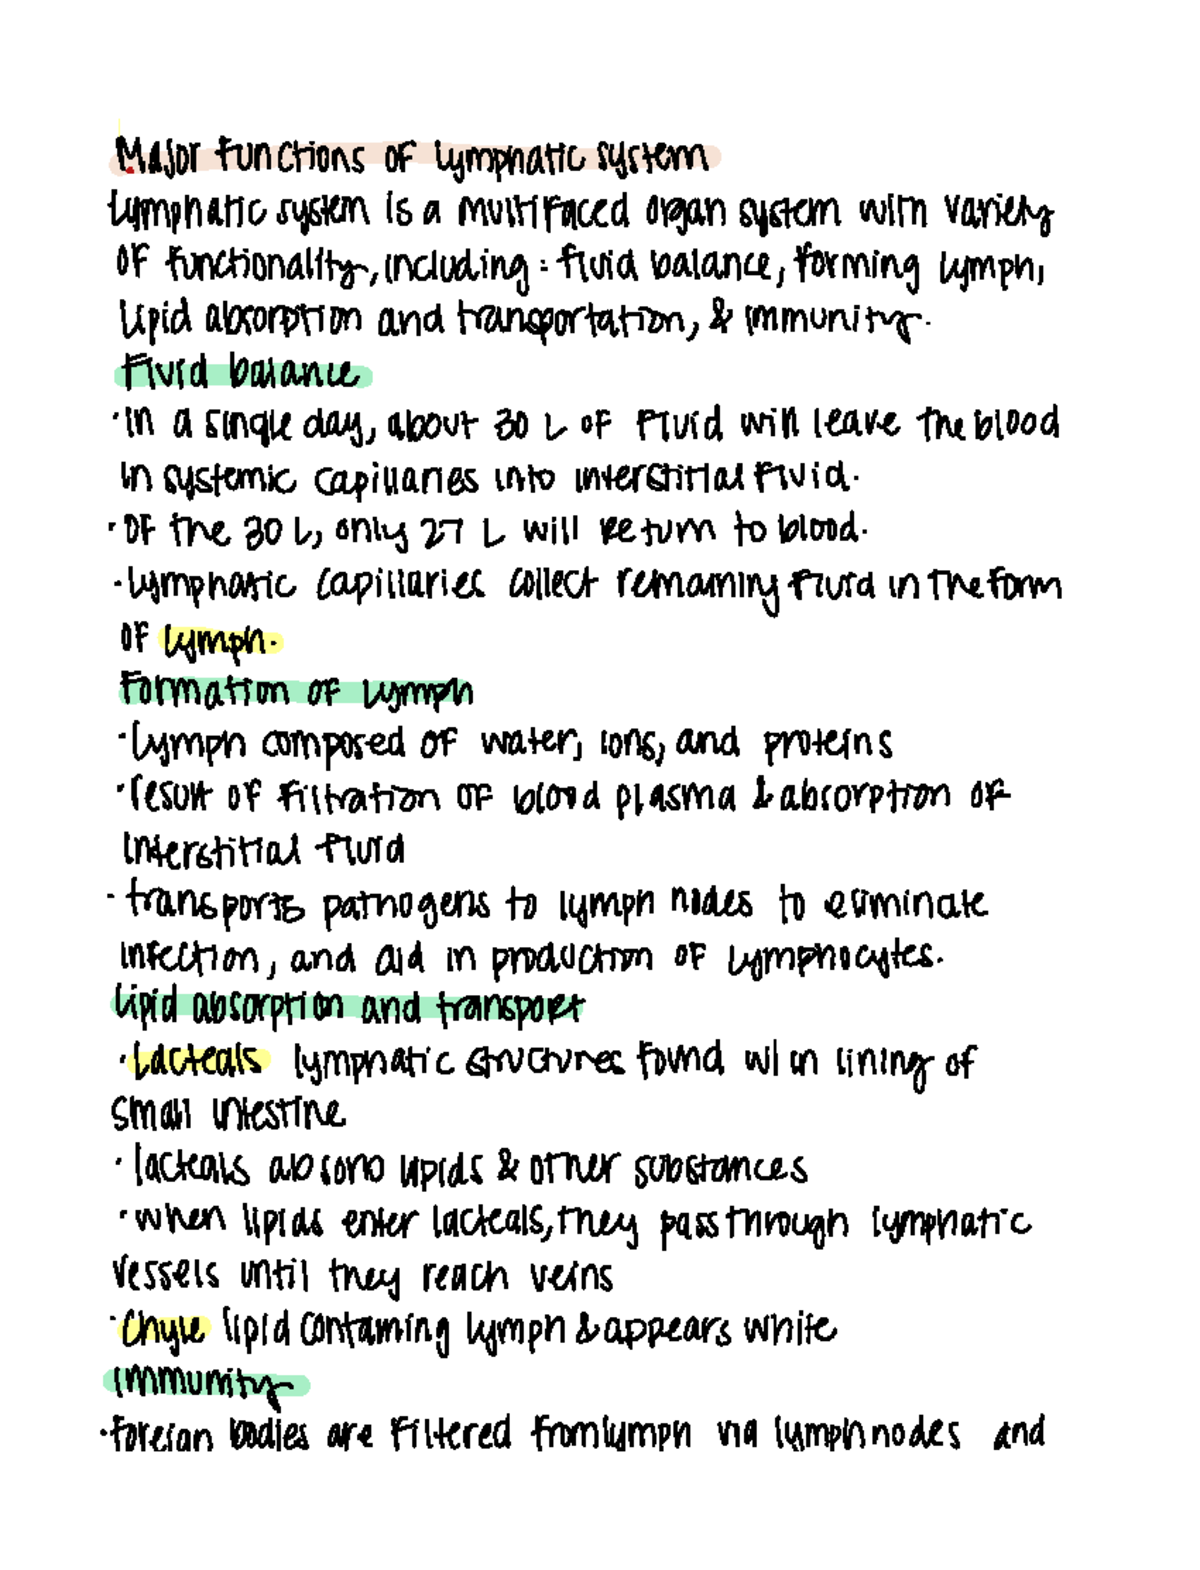 Major functions of lymphatic system
Lymphatic system is a multifaced organ system with variety
of functionality, including: fluid balance, forming lymph,
lipid absorption and transportation, & immunity.
Fluid balance
· In a single day, about 30 L of fluid will leave the blood
in systemic capillaries into interstitial fluid.
· Of the 30 L, only 27 L will return to blood.
· Lymphatic capillaries collect remaining fluid in the form
of lymph.
Formation of Lymph
· Lymph composed of water, ions, and proteins
· result of filtration of blood plasma & absorption of
interstitial fluid
· transports pathogens to lymph nodes to eliminate
infection, and aid in production of lymphocytes.
Lipid absorption and transport
· Lacteals lymphatic structures found w/in lining of
small intestine
· lacteals absorb lipids & other substances
· when lipids enter lacteals, they pass through lymphatic
vessels until they reach veins
· Chyle lipid containing lymph & appears white
Immunity
· foreign bodies are filtered from lymph via lymph nodes and